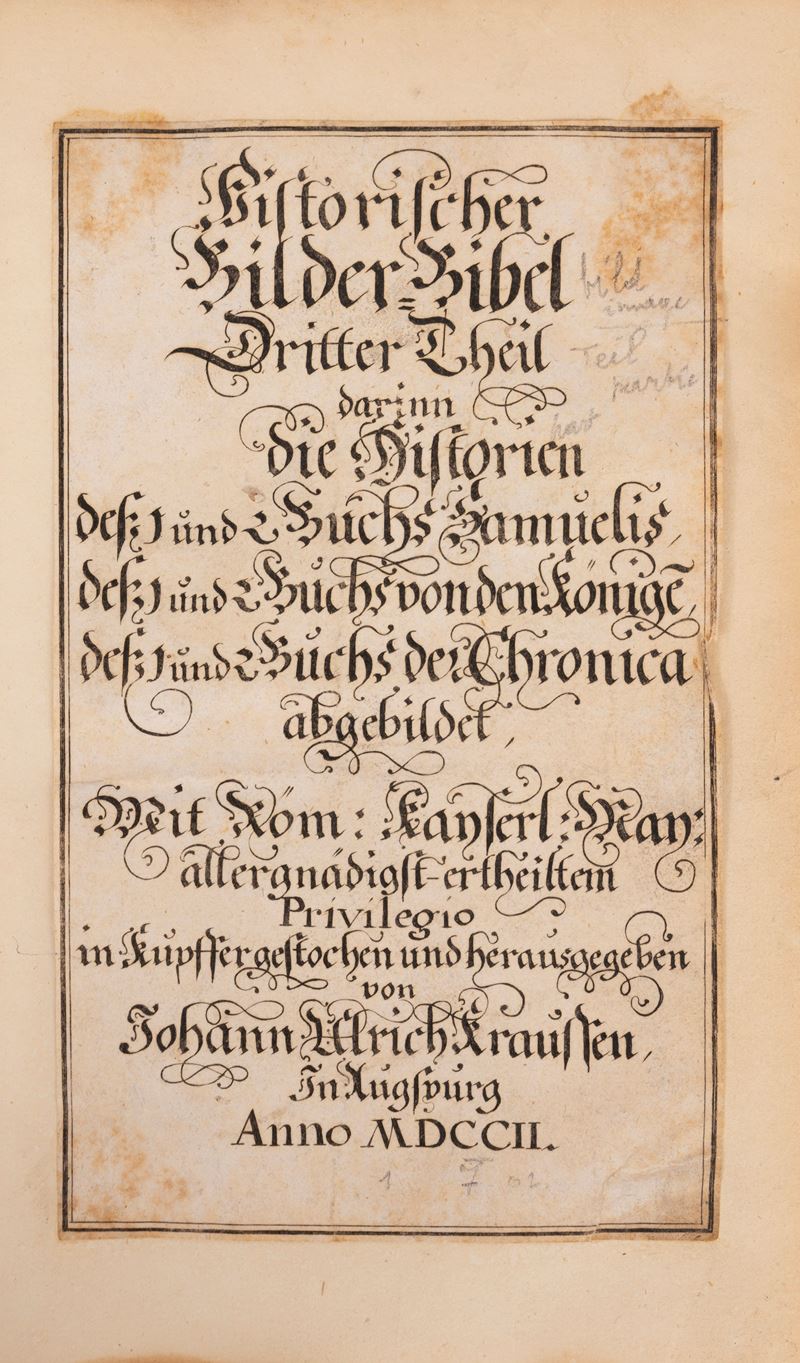 Historischer
Bilder-Bibel
bild
image
Dritter Theil
Teil
partie
darinn
die Historien
deß 1 und 2 Buchs Samuelis,
deß 1 und 2 Buchs von den Königē,
deß 1 und 2 Buchs der Chronica
abgebildet,
Mit Röm: Kayserl: May:
allergnädigst-ertheiltem
Privilegio
in Kupffer gestochen und herausgegeben
von
Johann Ulrich Kraussen,
In Augspurg
Anno MDCCII.
1 7 02